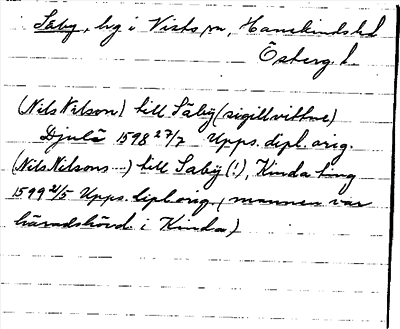 Säby, hg i Vists sn, Hanekinds hd
Österg. l.
(Nils Nilson) till Säby (sigillvittne)
Djulö 1598 27/7 Upps. dipl. orig.
(Nils Nilsons ...) till Saby (!), Kinda ting
1599 2/5 Upps. dipl. orig., mannen var
häradshövd. i Kinda)